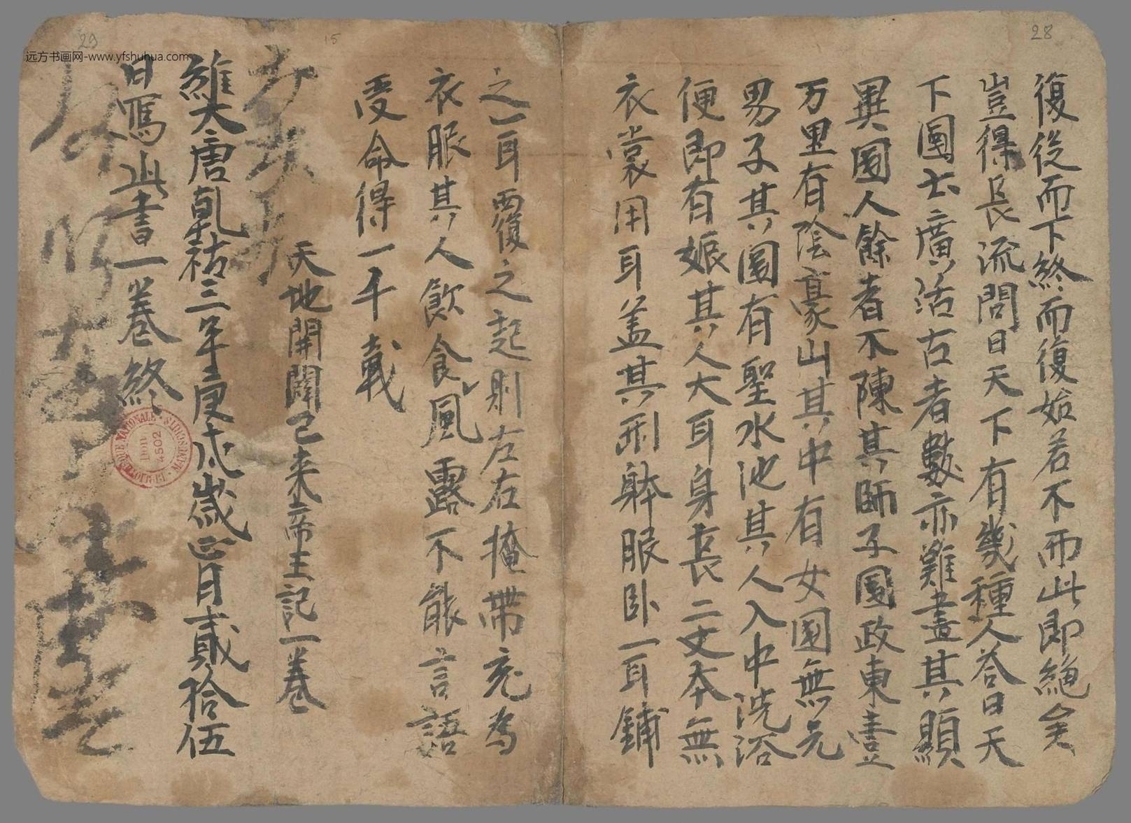 復從而下終而復始若不而此即絕矣
豈得長流問曰天下有幾種人荅曰天
下圀土廣活古者數亦難盡其顯
異圀人餘者不陳其師子圀政東壹
万里有陰豪山其中有女圀無元
男子其圀有聖水池其人入中洗浴
便即有娠其人大耳身長二丈本無
衣裳用耳盖其形躰眠卧一耳鋪
之一耳覆之起則左右掩帶充為
衣服其人飲食風露不能言語
受命得一千載
天地開闢已来帝王記一卷
維大唐乹祐三年庚戌歲正月貳拾伍
日寫此書一卷終
远方书画网-www.yfshuhua.com
29
15
28
4502